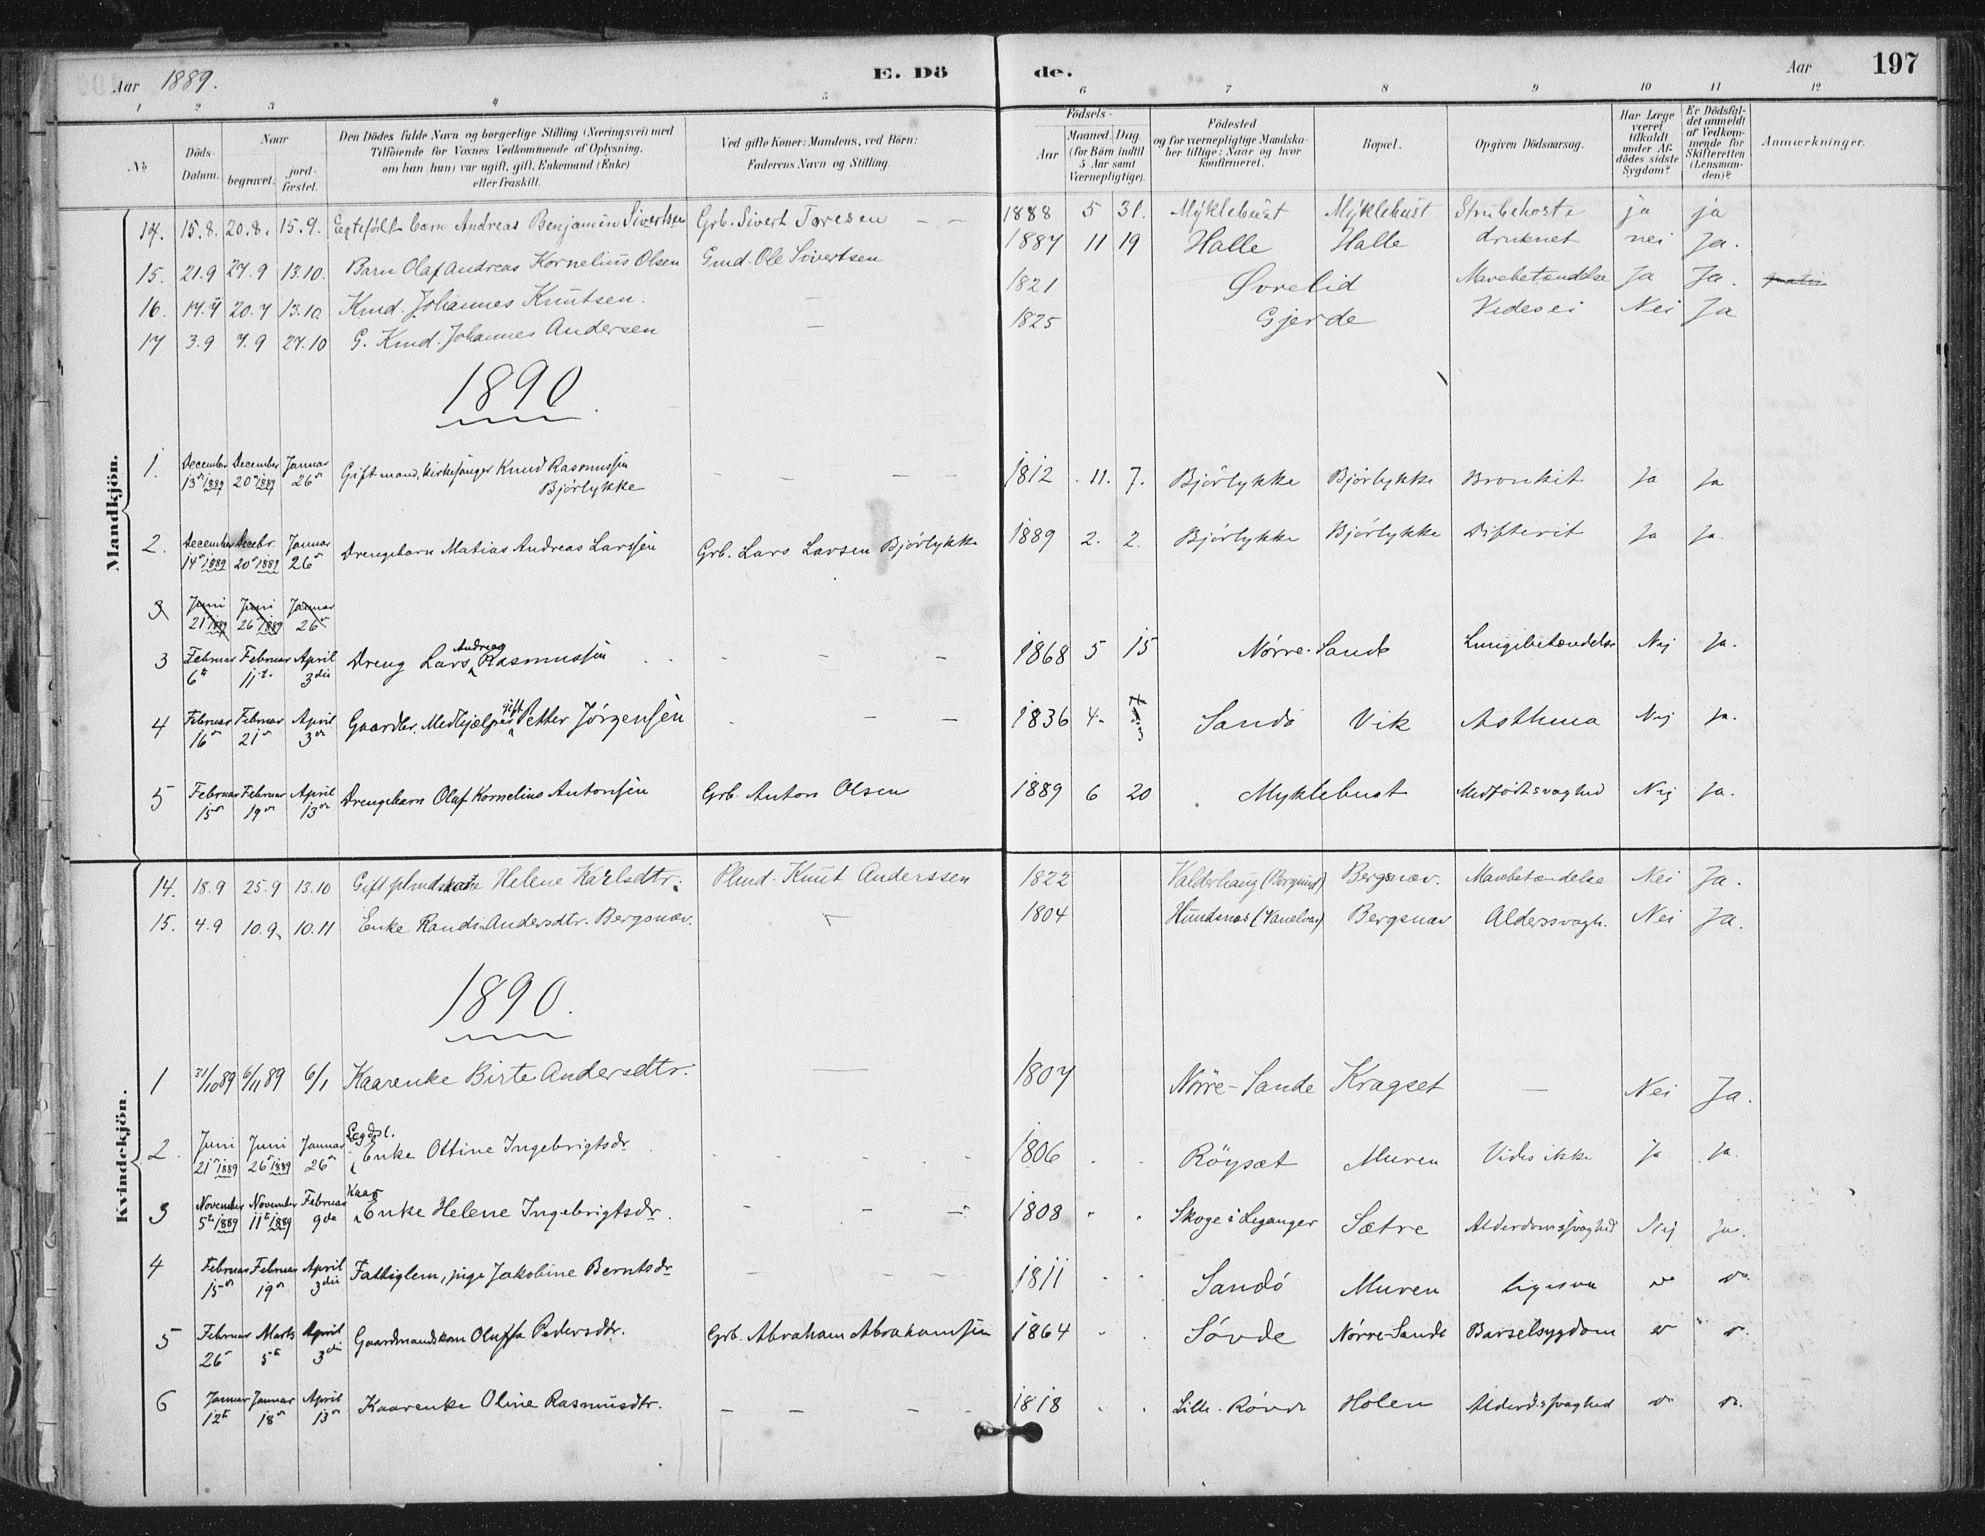 Aar 1889. E. Dö de. Aar 197
1 2 3 4 5 6 7 8 9 10 11 12
No
Döds-Datum.
Naar
begravet. jord-fæstet.
Den Dödes fulde Navn og borgerlige Stilling (Næringsvei) med
Tilföiende for Voxnes Vedkommende af Oplysning,
om han (hun) var ugift, gift, Enkemand (Enke)
eller fraskilt.
Ved gifte Koner: Mandens, ved Börn:
Faderens Navn og Stilling.
Födsels-
Aar
Maaned Dag
(for Börn indtil
5 Aar samt
Værnepligtige).
Födested
og for værnepligtige Mandska-
ber tillige: Naar og hvor
konfirmeret.
Bopæl.
Opgiven Dödsaarsag.
Har Læge
været
tilkaldt
under Af-
dödes sidste
Sygdom?
Er Dödsfal-
det anmeldt
af Vedkom-
mende for
Skifteretten
(Lensman-
den)?
Anmærkninger.
Mandkjön.
14. 15.8. 20.8. 15.9. Egtefölt barn Andreas Benjamin Sivertsen Grb. Sivert Toresen – – 1888 5 31. Myklebust Myklebust Strubehoste ja ja
15. 21.9 27.9 13.10. Barn Olaf Andreas Kornelius Olsen Gmd. Ole Sivertsen 1887 11 19 Halle Halle druknet nei Ja.
16. 14.7 20.7 13.10 Kmd. Johannes Knutsen. – 1821 Øvrelid Mavebetændelse Ja Ja.
17 3.9 7.9 27.10 G. Kmd. Johannes Andersen – 1825 Gjerde Vides ei Nei Ja
1890.
1. December 13de 1889 December 20de 1889 Januar 26de Gift mand, kirkesanger Knud Rasmussen Bjørlykke – – – 1812 11. 7. Bjørlykke Bjørlykke Bronkit Ja Ja
2. December 14de 1889 Decebr. 20de 1889 Januar 26de Drengebarn Matias Andreas Larssen Grb. Lars Larsen Bjørlykke 1889 2. 2. Bjørlykke Bjørlykke Difterit Ja Ja.
3 Juni 21de 1889 Juni 26de 1889 Januar 26de
3 Februar 6te Februar 11te April 3die Dreng Lars Andreas Rasmussen – – 1868 5 15 Nørre-Sande Lungebetændelse Nej Ja.
4 Februar 16de Februar 21de April 3die Gaardbr. Medhjælper gift Petter Jørgensen – – 1836 4. Sandø Vik Asthma Nej Ja.
5 Februar 15de Februar 19de April 13de Drengebarn Olaf Kornelius Antonsen Grb. Anton Olsen 1889 6 20 Myklebust Medfødt svaghed Nej Ja.
Kvindekjön.
14. 18.9 25.9 13.10 Gift plmdskone Helene Karlsdtr. Plmd. Knut Anderssen 1822 Valderhaug (Borgund) Bergsnæv. Mavebetændelse Nei Ja.
15. 4.9 10.9 10.11 Enke Randi Andersdtr. Bergsnæv. 1804 Hundsnes (Vanelven) Bergsnæv Alderssvagh. Nei Ja.
1890.
1 31/10 89 6/11 89 6/1 Kaarenke Birte Andersdtr. – 1807 Nörre-Sande Kragset – Nei Ja.
2. Juni 21de 1889 Juni 26de 1889 Januar 26de Legdsl. Enke Ottine Ingebrigtsdr 1806 Röysæt Muren Vides ikke Ja Ja.
3 November 5te 1889 November 11te 1889 Februar 9de Kaar Enke Helene Ingebrigtsdr. – – – 1808 Skoge i Leganger Sætre Alderdomssvaghed Nej Ja.
4 Februar 15de Februar 19de April 3die Fattiglem, pige Jakobine Berntsdr – – – 1811 Sandø Muren ligesaa
5 Februar 26de Marts 5te April 3die Gaardmandskone Oluffa Pedersdtr. Grb. Abraham Abrahamsen 1864 Søvde Nørre-Sande Barselsygdom
6 Januar 12te Januar 18de April 13de Kaarenke Oline Rasmusdtr. – – – – 1818 Lille-Røvde Holen Alderdssvaghed